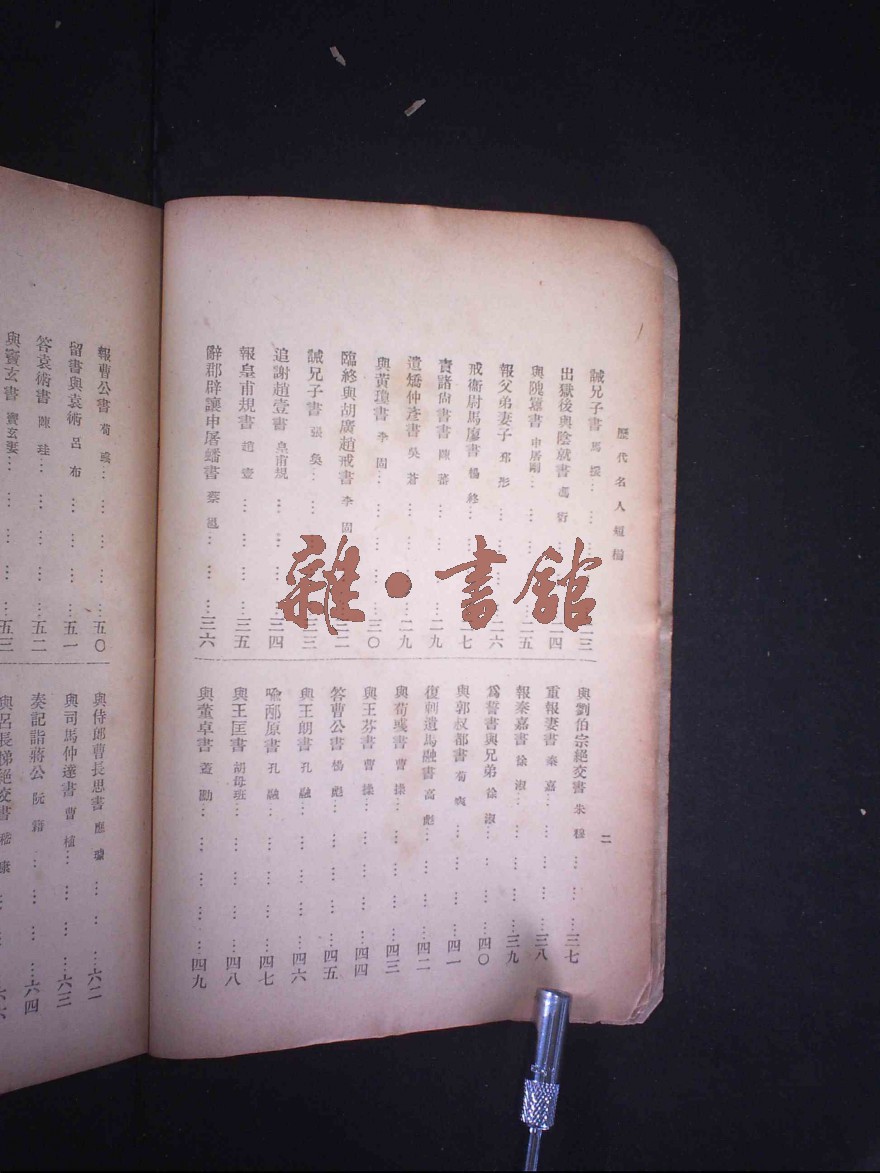 歷代名人短牘
誡兄子書 馬援……二三
出獄後與陰就書 馮衍……二四
與隗囂書 申屠剛……二五
報父弟妻子 邳彤……二六
戒衛尉馬廖書 楊終……二七
責諸尙書書 陳蕃……二九
遺矯仲彥書 吳蒼……二九
與黃瓊書 李固……三〇
臨終與胡廣趙戒書 李固……三二
誡兄子書 張奐……三三
追謝趙壹書 皇甫規……三四
報皇甫規書 趙壹……三五
辭郡辟讓申屠蟠書 蔡邕……三六
與劉伯宗絕交書 朱穆……三七
重報妻書 秦嘉……三八
報秦嘉書 徐淑……三九
爲誓書與兄弟 徐淑……四〇
與郭叔都書 荀爽……四一
復刺遺馬融書 高彪……四二
與荀彧書 曹操……四三
與王芬書 曹操……四四
答曹公書 楊彪……四五
與王朗書 孔融……四六
喩邴原書 孔融……四七
與王匡書 胡母班……四八
與董卓書 蓋勳……四九
二
報曹公書 荀彧……五〇
留書與袁術 呂布……五一
答袁術書 陳珪……五二
與竇玄書 竇玄妻……五三
與侍郎曹長思書 應璩……六二
與司馬仲達書 曹植……六三
奏記詣蔣公 阮籍……六四
與呂長悌絕交書 嵇康……六六
雜·書館